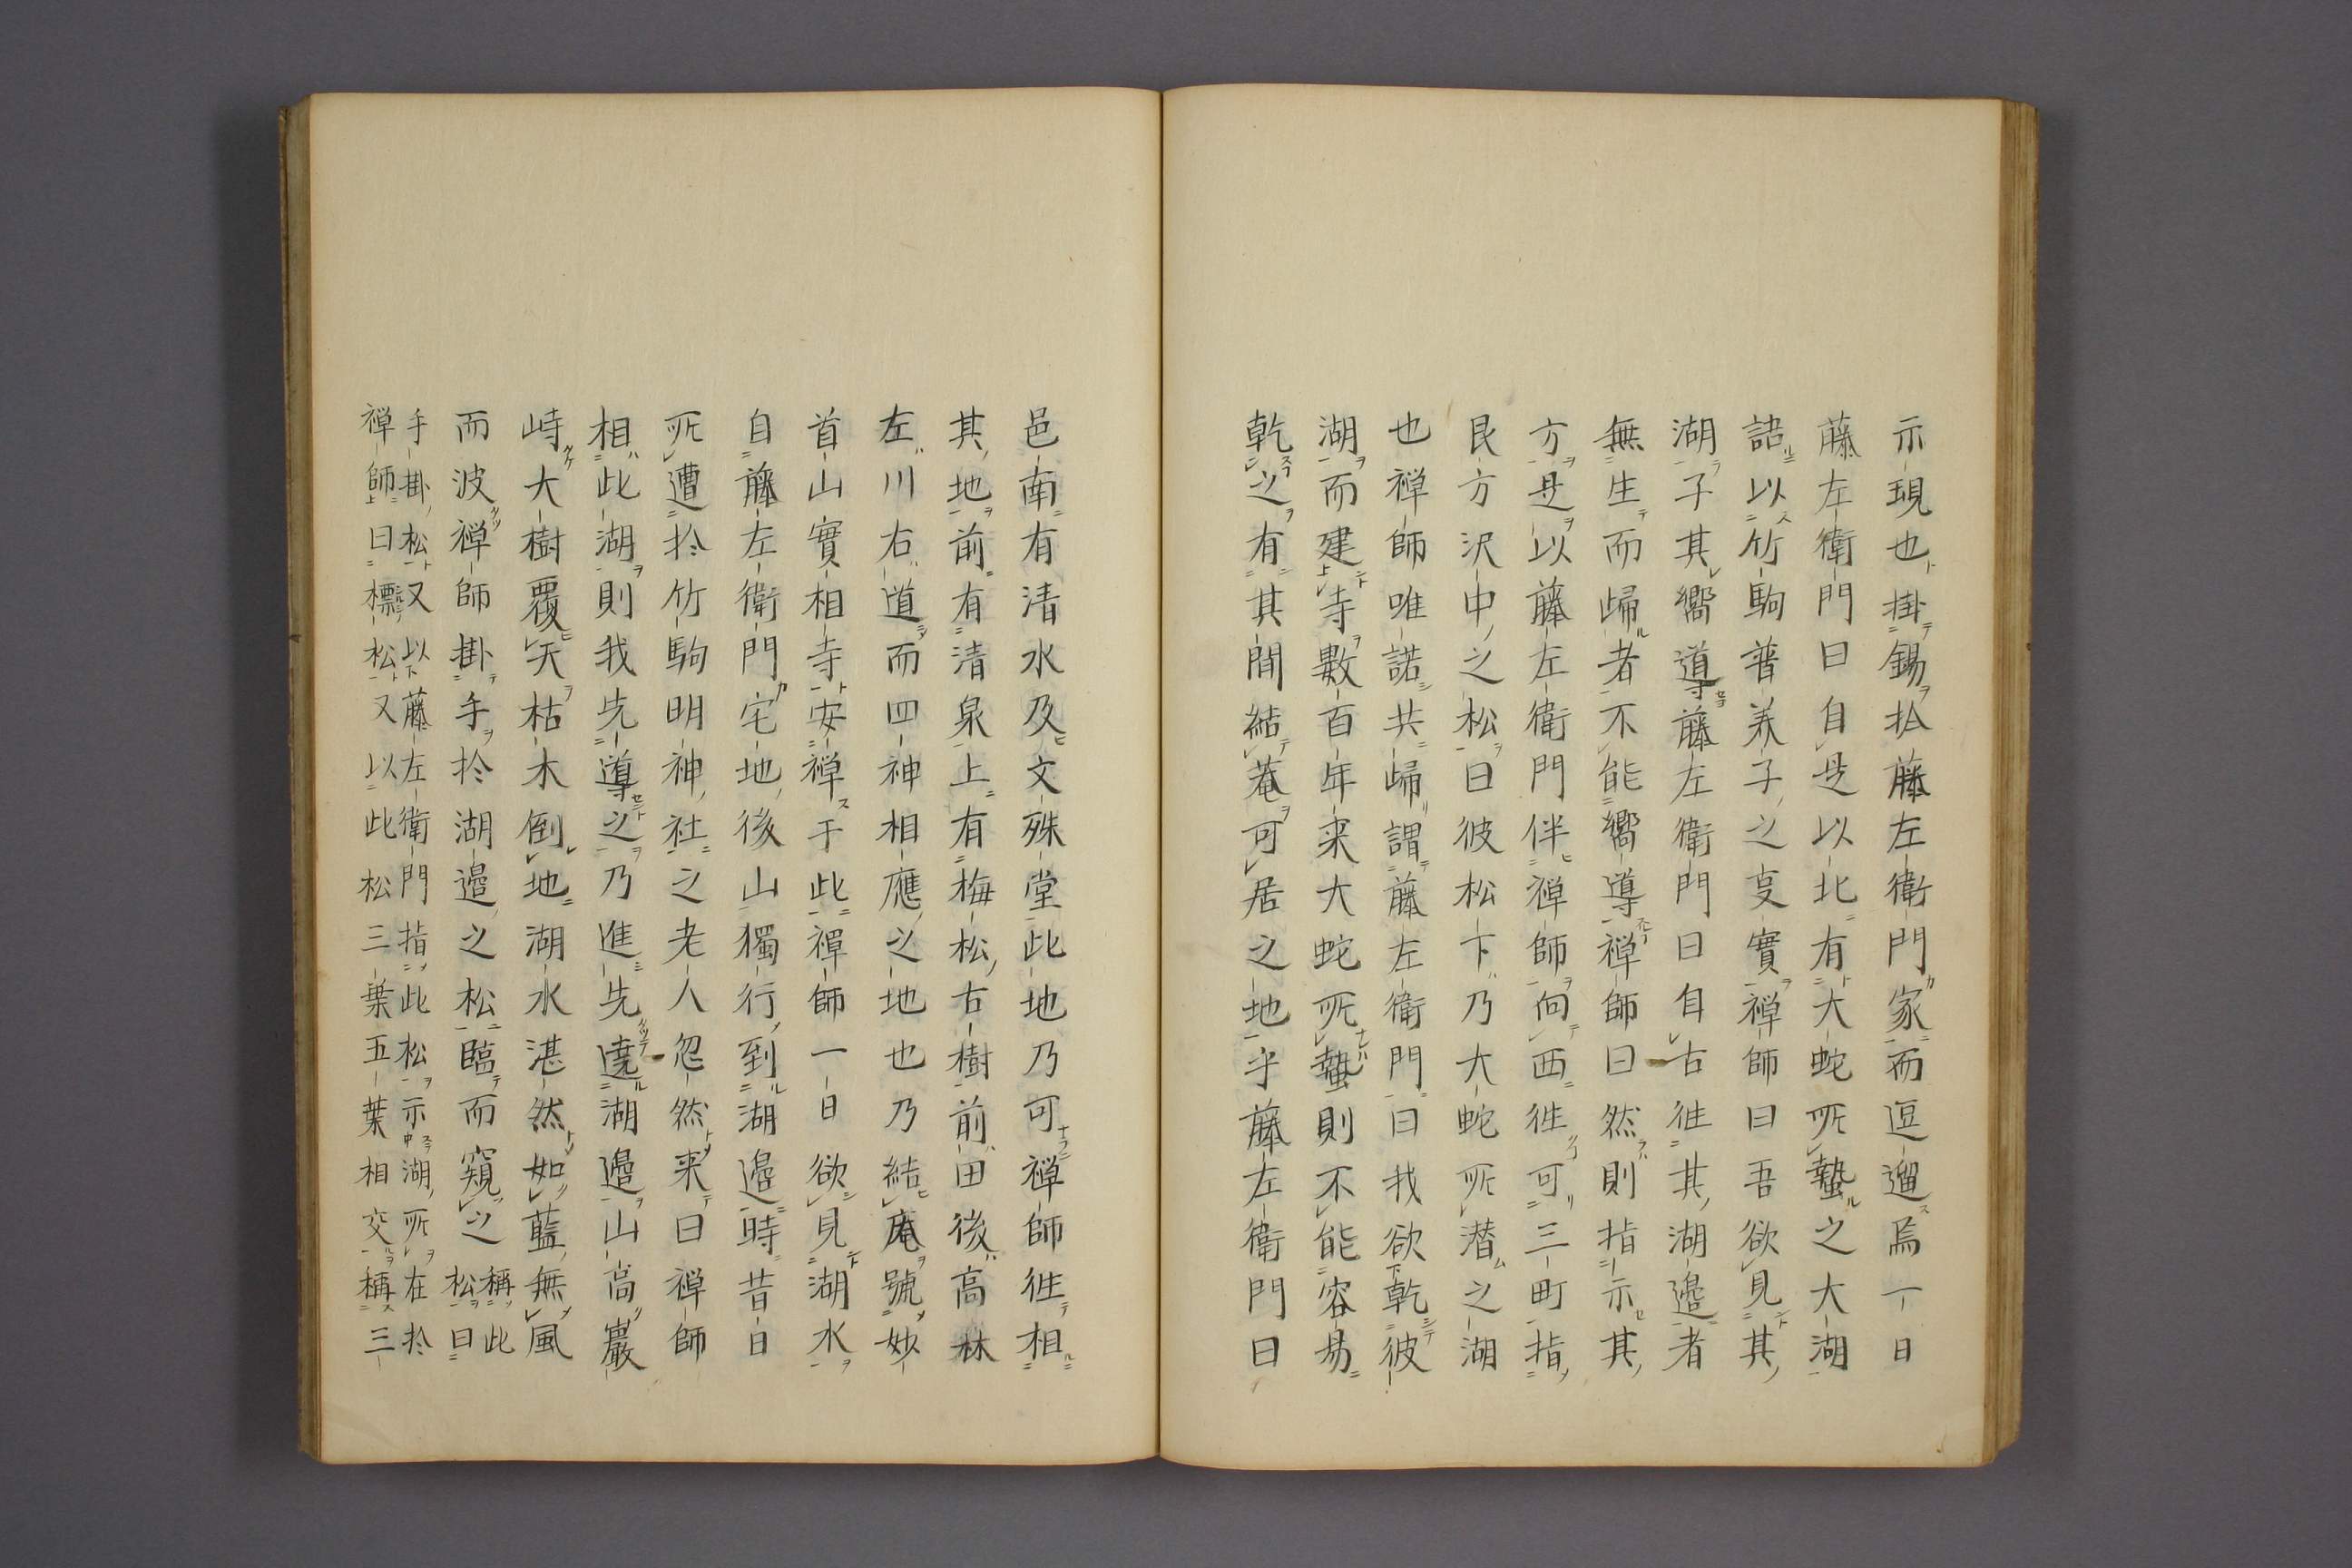 示現也掛錫於藤左衛門家而逗遛焉一日
藤左衛門曰自是以北有大蛇所蟄之大湖
詰以竹駒普義子之㕝實禅師曰吾欲見其
湖子其嚮導藤左衛門曰自古往其湖邉者
無生而歸者不能嚮導禅師曰然則指示其
方是以藤左衛門伴禅師向西徃可三町指
艮方沢中之松曰彼松下乃大蛇所潜之湖
也禅師唯諾共歸謂藤左衛門曰我欲乾彼
湖而建寺數百年来大蛇所蟄則不能容易
乾之有其間結菴可居之地乎藤左衛門曰
邑南有清水及文殊堂此地乃可禅師徃相
其地前有清泉上有梅松右樹前田後高林
左川右道而四神相應之地也乃結庵號妙
首山實相寺安禅于此禪師一日欲見湖水
自藤左衛門宅地後山獨行到湖邉時昔日
所遭於竹駒明神社之老人忽然来曰禅師
相此湖則我先導之乃進先遶湖邉山高巖
峙大樹覆天枯木倒地湖水湛然如藍無風
而波禅師掛手於湖邉之松臨而窺之稱此松曰
手掛松又以藤左衛門指此松示湖所在於
禅師曰標松又以此松三葉五葉相交稱三